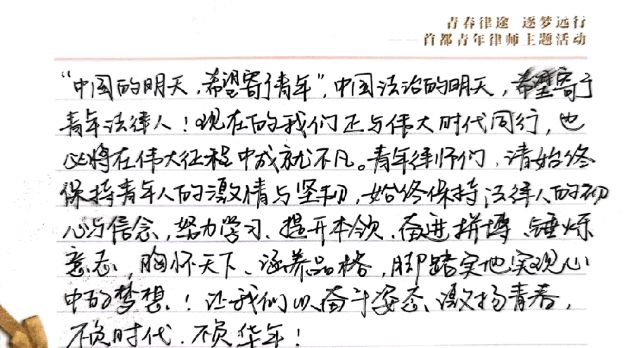 青春律途 逐梦远行
——首都青年律师主题活动
“中国的明天，希望寄于青年”，中国法治的明天，希望寄于
青年法律人！现在的我们正与伟大时代同行，也
必将在伟大征程中成就不凡。青年律师们，请始终
保持青年人的激情与坚韧，始终保持法律人的初
心与信念，努力学习、提升本领、奋进拼搏、锤炼
意志，胸怀天下、涵养品格，脚踏实地实现心
中的梦想！让我们以奋斗姿态、激扬青春，
不负时代、不负华年！